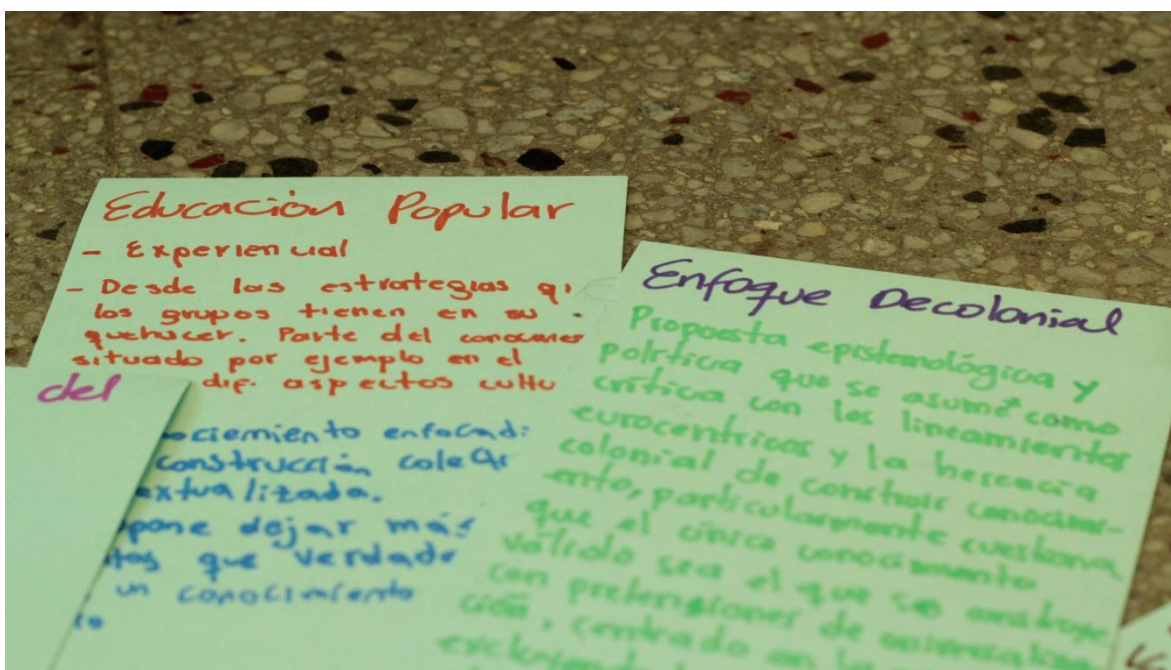 Educación Popular
- Experiencial
- Desde las estrategias
los grupos tienen en su
quehacer. Parte del
situado por ejemplo en el
dif. aspectos
del
enfocad
construcción
dejar más
que
un conocimiento
Enfoque Decolonial
Propuesta epistemológica y
política que se asume como
crítica con los lineamientos
eurocentricos y la herencia
colonial de construir conocimi-
ento, particularmente cuestiona
que el único conocimiento
válido sea el que se construye
con pretensiones de
centrado en